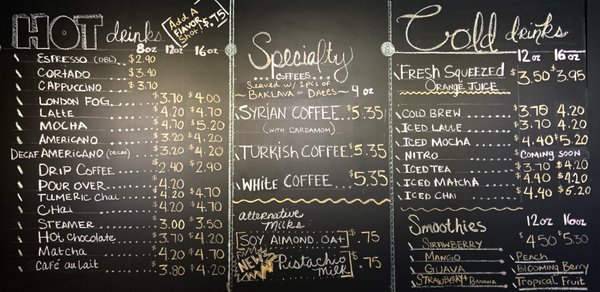 HOT drinks
Add A FLAVOR Shot! $.75
8oz 12oz 16oz
ESPRESSO (DBL) $2.90
CORTADO $3.40
CAPPUCCINO $3.70
LONDON FOG $3.70 $4.00
LATTE $4.20 $4.70
MOCHA $4.70 $5.20
AMERICANO $3.20 $4.20
DECAF AMERICANO (DECAF) $3.20 $4.20
DRIP COFFEE $2.40 $2.90
POUR OVER $4.20
TUMERIC CHAI $4.20 $4.70
CHAI $4.20 $4.70
STEAMER $3.00 $3.50
HOT chocolate $3.70 $4.20
Matcha $4.20 $4.70
Café au lait $3.80 $4.20
Specialty
COFFEES
SERVED W/ 2PCS OF
BAKLAVA OR DATES ~ 4oz
SYRIAN COFFEE $5.35
(WITH CARDAMOM)
TURKISH COFFEE $5.35
WHITE COFFEE $5.35
alternative
Milks
SOY, ALMOND, OAT $.75
NEW
Pistachio
Milk $.75
Cold drinks
12oz 16oz
FRESH SQUEEZED $3.50 $3.95
ORANGE JUICE
COLD BREW $3.75 4.20
ICED LATTE $3.70 4.20
ICED MOCHA $4.40 $5.20
NITRO COMING SOON
ICED TEA $3.70 $4.20
ICED MATCHA $4.40 $4.20
ICED CHAI $4.40 $5.20
Smoothies 12oz 16oz
$4.50 $5.30
STRAWBERRY
MANGO PEACH
GUAVA BLOOMING Berry
STRAWBERRY + BANANA Tropical Fruit